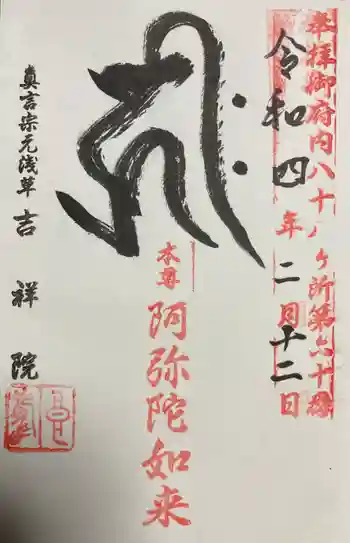 奉拝御府内八十八ヶ所第六十
令和四年二月十二日
𑖮𑖿𑖨𑖱𑖾
本尊
阿弥陀如来
真言宗元浅草吉祥院